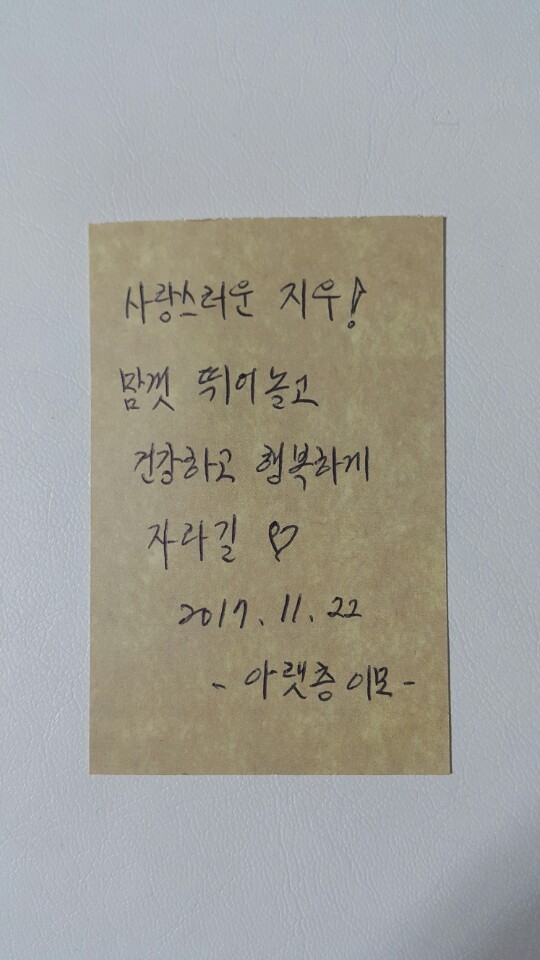 사랑스러운 지우!
맘껏 뛰어놀고
건강하고 행복하게
자라길 ♡
2017. 11. 22
- 아랫층 이모 -